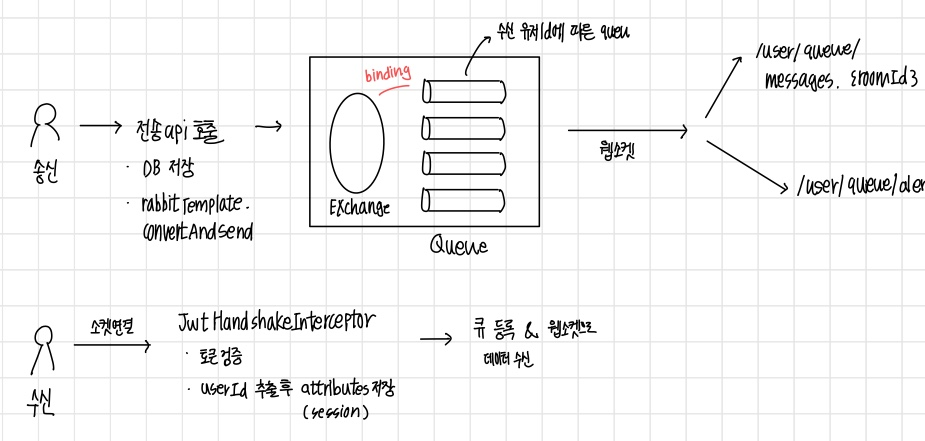 수신 유저Id에 따른 queu
binding
/user/queue/
messages.{roomId}
전송api 호출
· DB 저장
· rabbitTemplate.
convertAndSend
송신
웹소켓
Exchange
/user/queue/aler
Queue
소켓연결
JwtHandshakeInterceptor
· 토큰검증
· userId 추출후 attributes저장
(session)
큐 등록 & 웹소켓으로
데이터 수신
수신